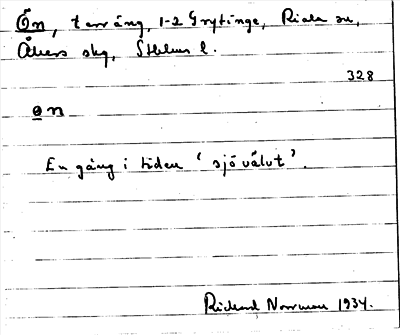 Ön, terräng, 1-2 Grytinge, Riala sn,
Åkers skg, Sthlms l.
328
ɵn
En gång i tiden 'sjövälvt'.
Rickard Norrman 1934.